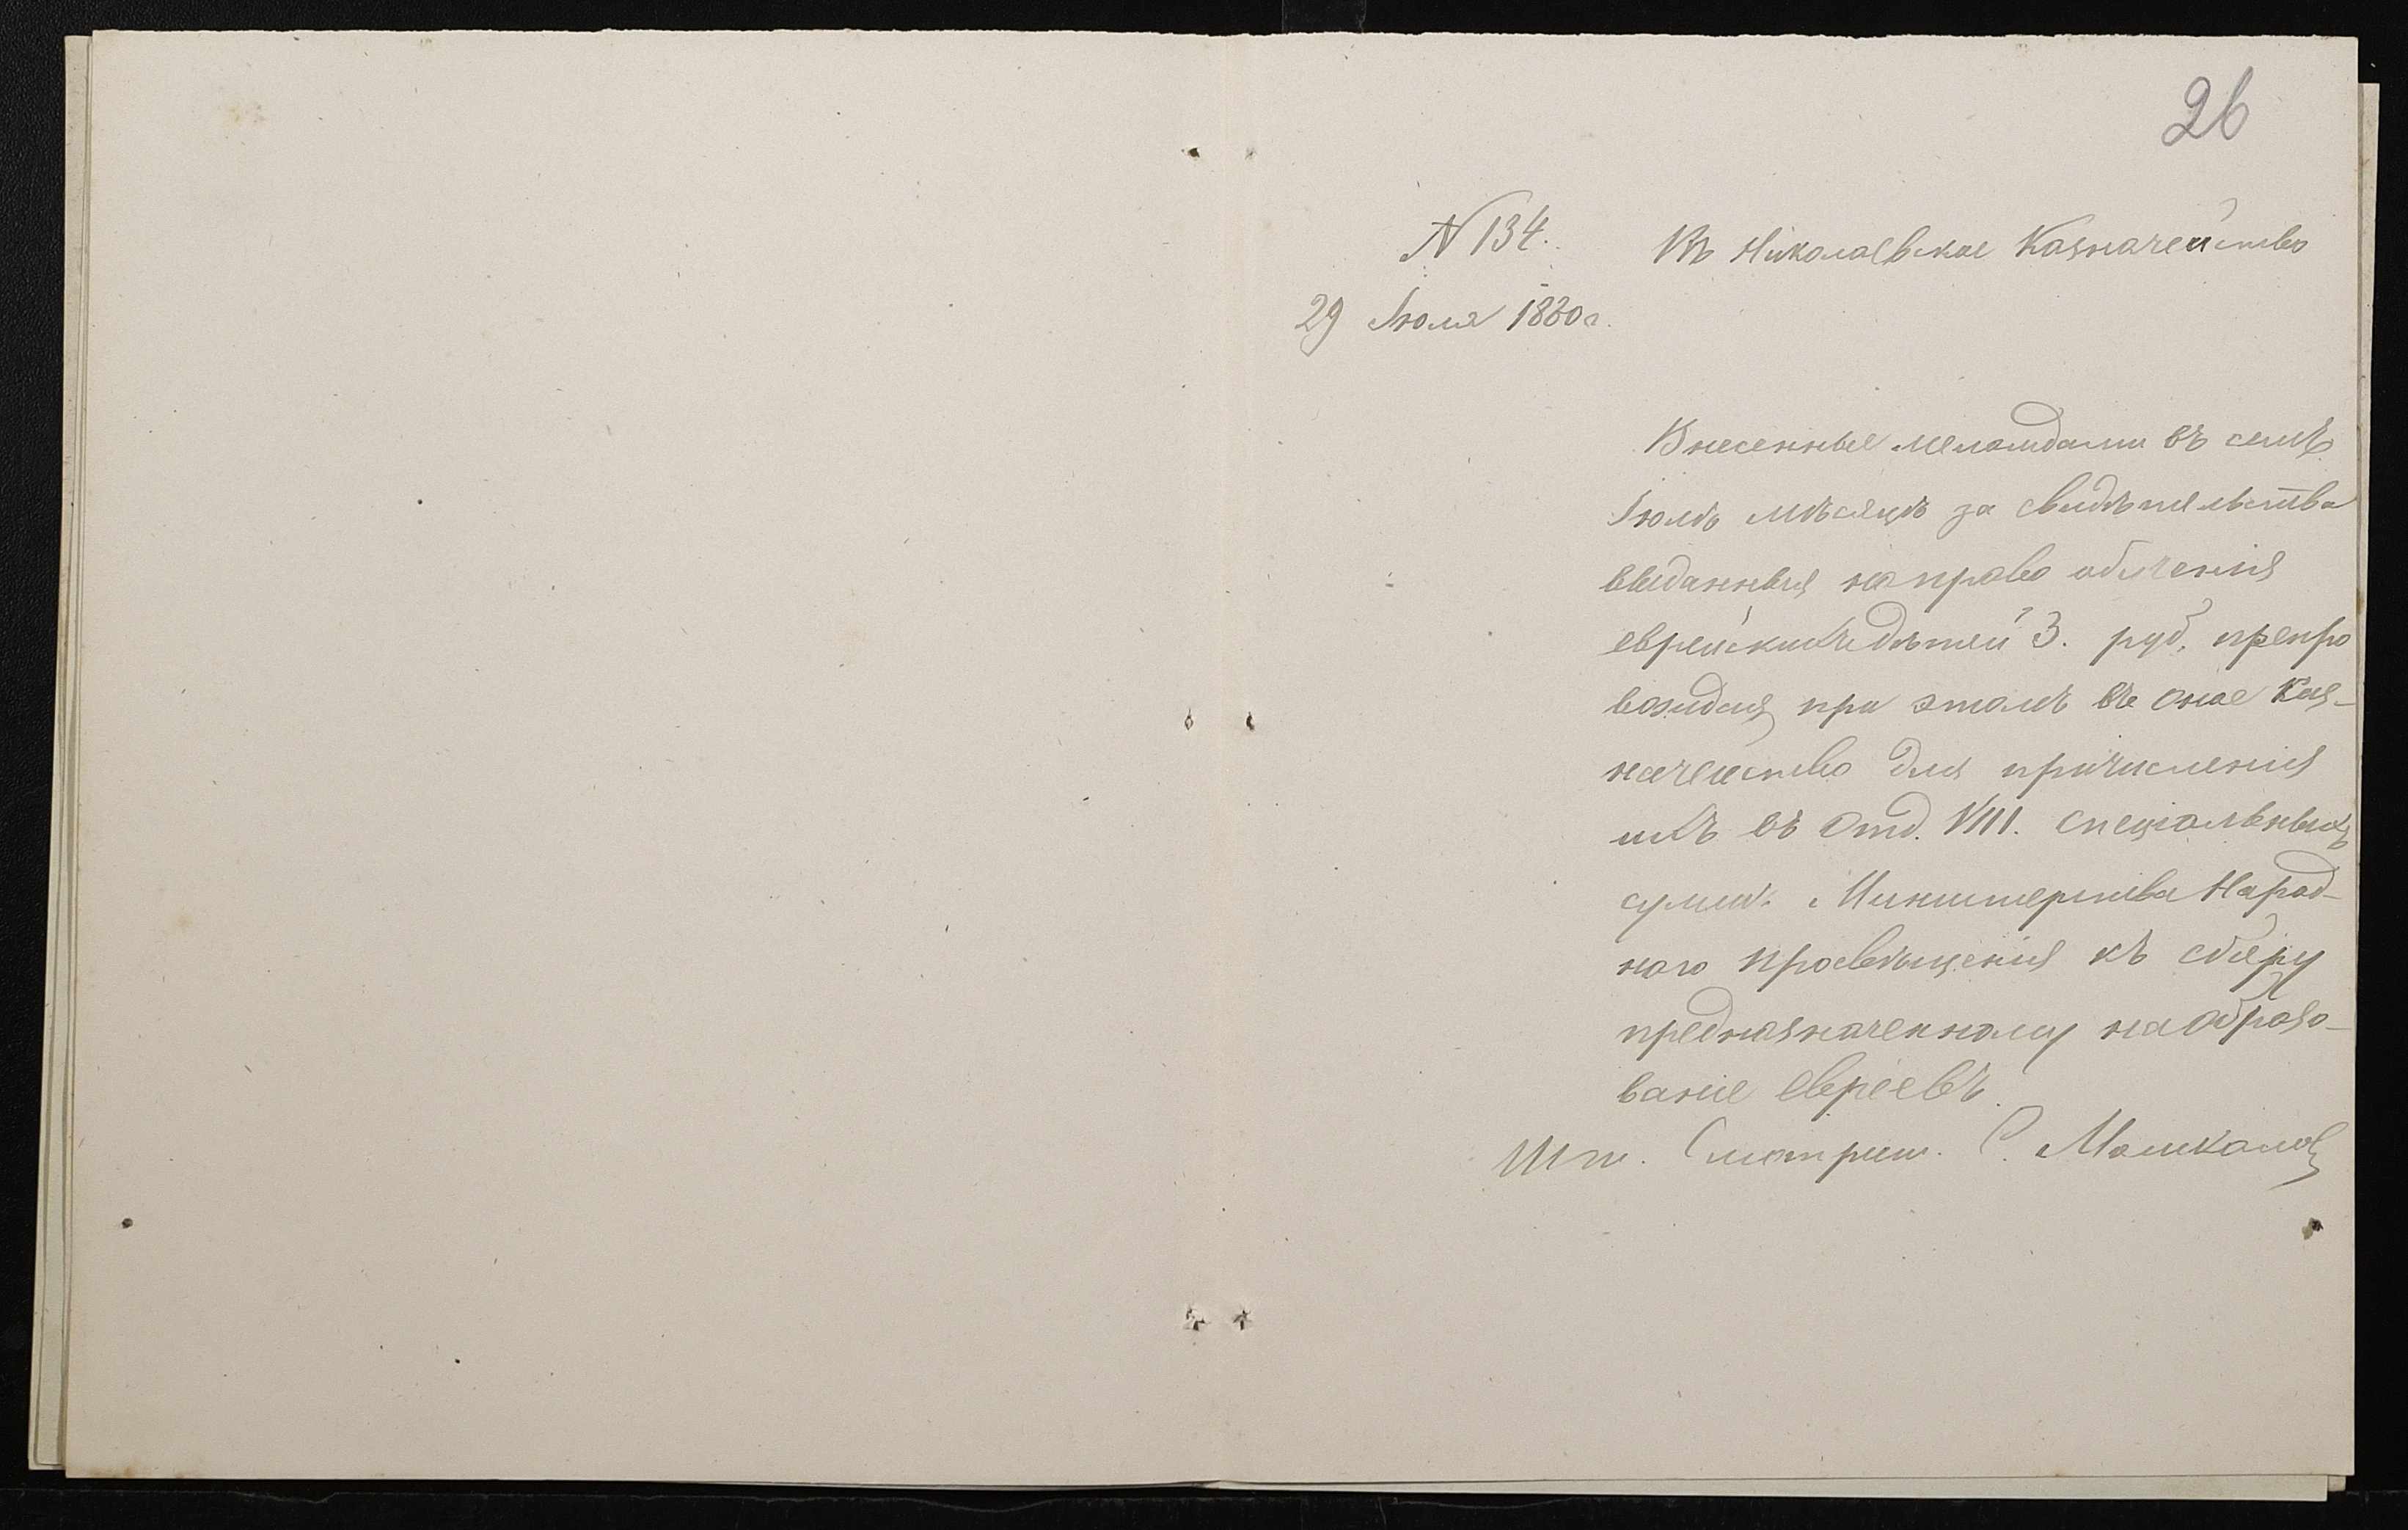 26
N 134.
Въ Николаевское Казначейство
29 Іюля 1880 г.
Внесенные меламдами въ семъ
Іюлѣ мѣсяцѣ за свидѣтельства
выданныя на право обученія
еврейскихъ дѣтей 3. руб. препро
вождая при этомъ въ оное Каз-
начейство для причисленія
ихъ въ Отд. VIII. спеціальныхъ
суммъ Министерства Народ-
наго просвѣщенія къ сбору
предназначенному на образо-
ваніе евреевъ.
Шт. Смотрит. С.